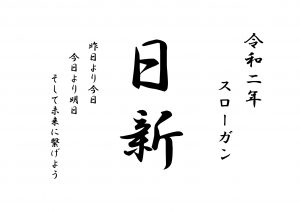 令和二年
スローガン
日新
昨日より今日
今日より明日
そして未来に繋げよう